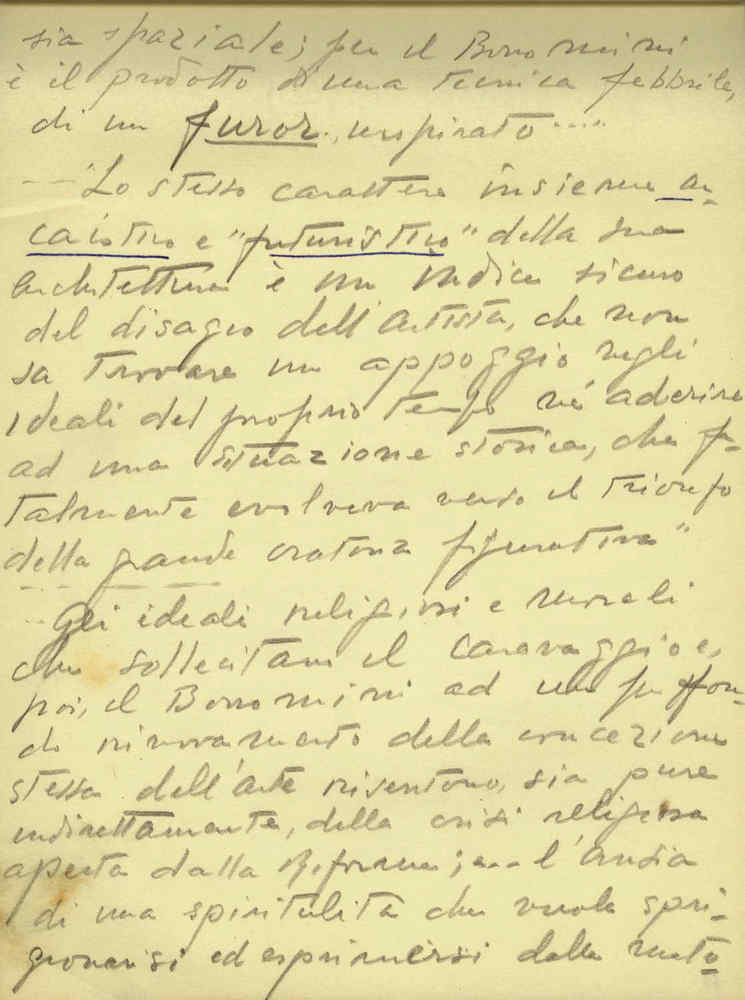 sia spaziale; per il Borromini
è il prodotto di una tecnica febbrile,
di un furor, inspirato ....
--- "Lo stesso carattere insieme ar-
caistico e "futuristico" della sua
architettura è un indice sicuro
del disagio dell'artista, che non
sa trovare un appoggio negli
ideali del proprio tempo né aderire
ad una situazione storica, che fa-
talmente evolveva verso il trionfo
della grande oratoria figurativa"
Gli ideali religiosi e morali
che sollecitano il Caravaggio e,
poi, il Borromini ad un profon-
do rinnovamento della concezione
stessa dell'arte risentono, sia pure
indirettamente, della crisi religiosa
aperta dalla Riforma; ... l'ansia
di una spiritulità che vuole spri-
gionarsi ed esprimersi dalla mate-